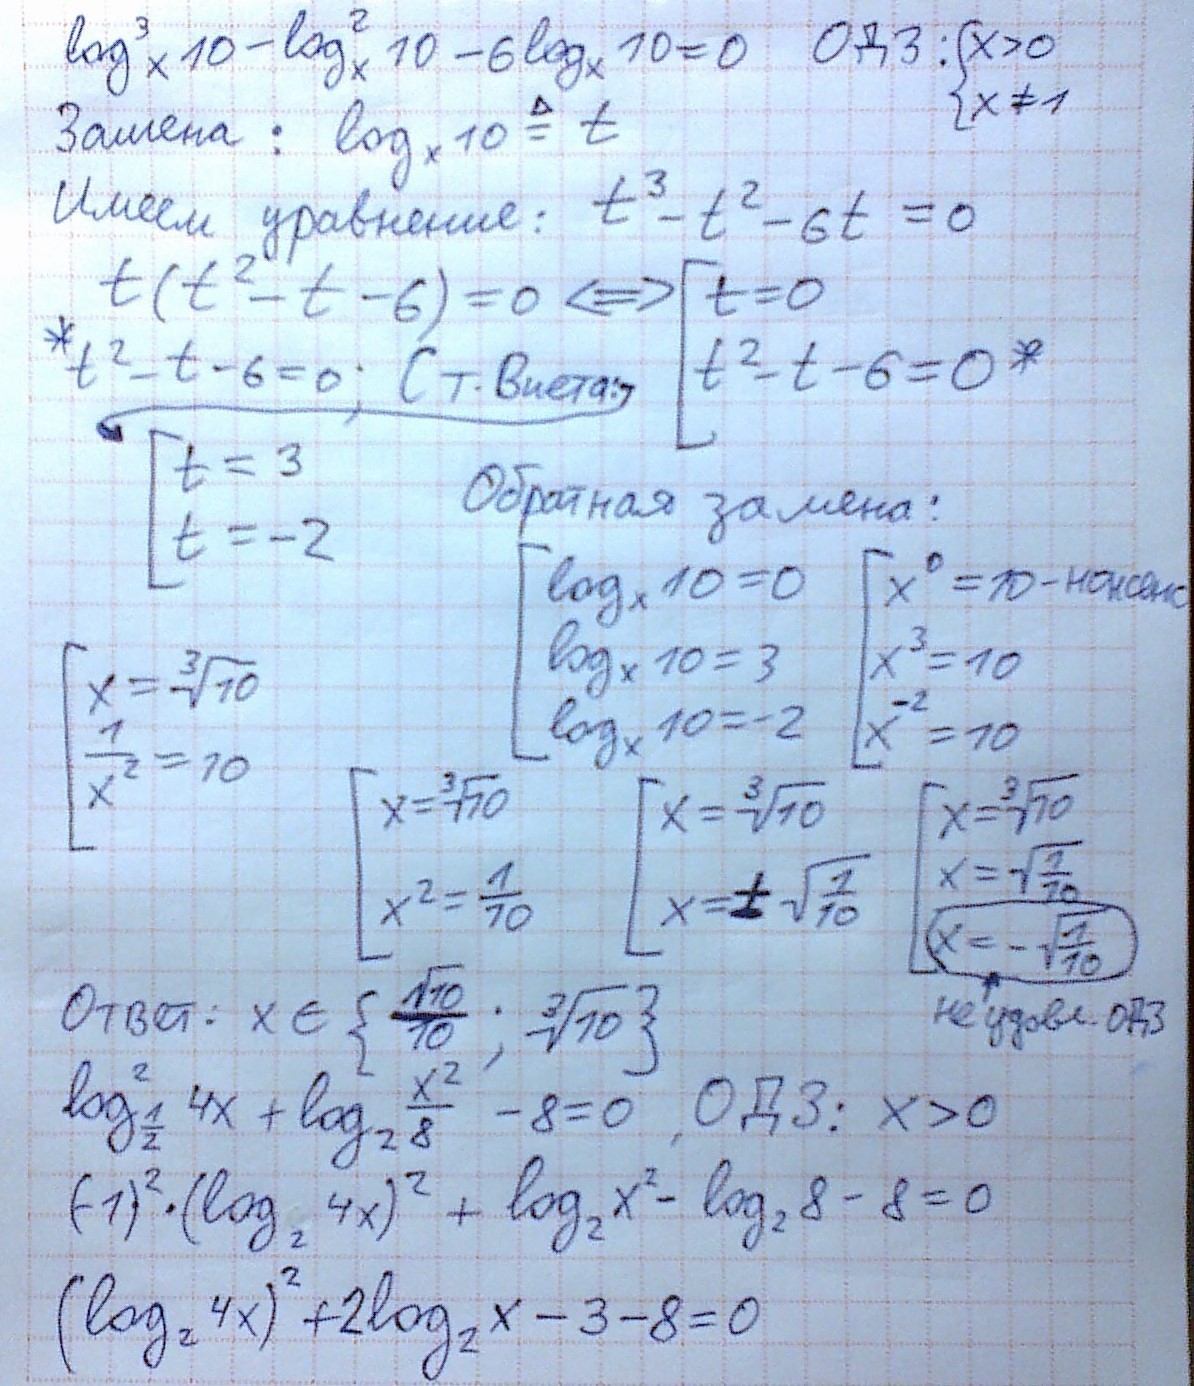 log³ₓ 10 − log²ₓ 10 − 6 logₓ 10 = 0 ОДЗ: { x > 0
{ x ≠ 1
Замена: logₓ 10 ≜ t
Имеем уравнение: t³ − t² − 6t = 0
t(t² − t − 6) = 0 <=> [ t = 0
* t² − t − 6 = 0; (т. Виета:) [ t² − t − 6 = 0 *
[ t = 3
[ t = −2
Обратная замена:
[ logₓ 10 = 0 [ x⁰ = 10 − нонсенс
[ logₓ 10 = 3 [ x³ = 10
[ logₓ 10 = −2 [ x⁻² = 10
[ x = ³√10
[ 1/x² = 10
[ x = ³√10 [ x = ³√10 [ x = ³√10
[ x² = 1/10 [ x = ± √(1/10) [ x = √(1/10)
[ x = − √(1/10)
не удовл. ОДЗ
Ответ: x ∈ { √10/10 ; ³√10 }
log²_(1/2) 4x + log₂ x²/8 − 8 = 0, ОДЗ: x > 0
(−1)² · (log₂ 4x)² + log₂ x² − log₂ 8 − 8 = 0
(log₂ 4x)² + 2log₂ x − 3 − 8 = 0